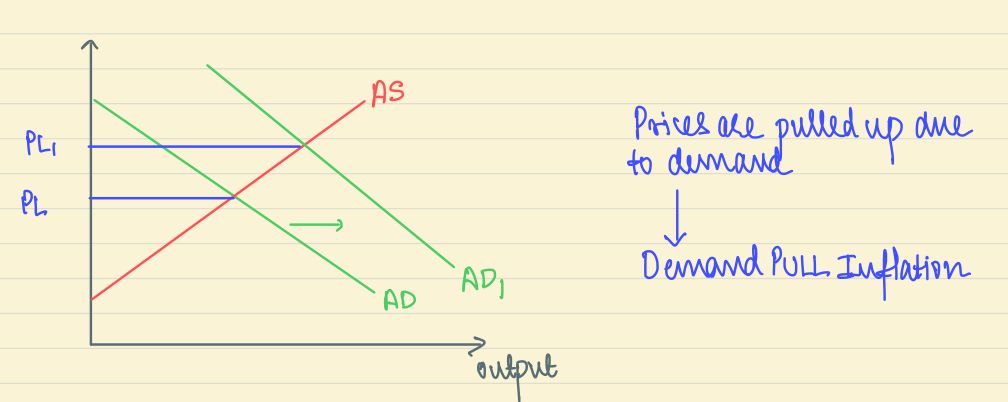 AS
PL₁
PL
AD₁
AD
output
Prices are pulled up due
to demand
Demand PULL Inflation